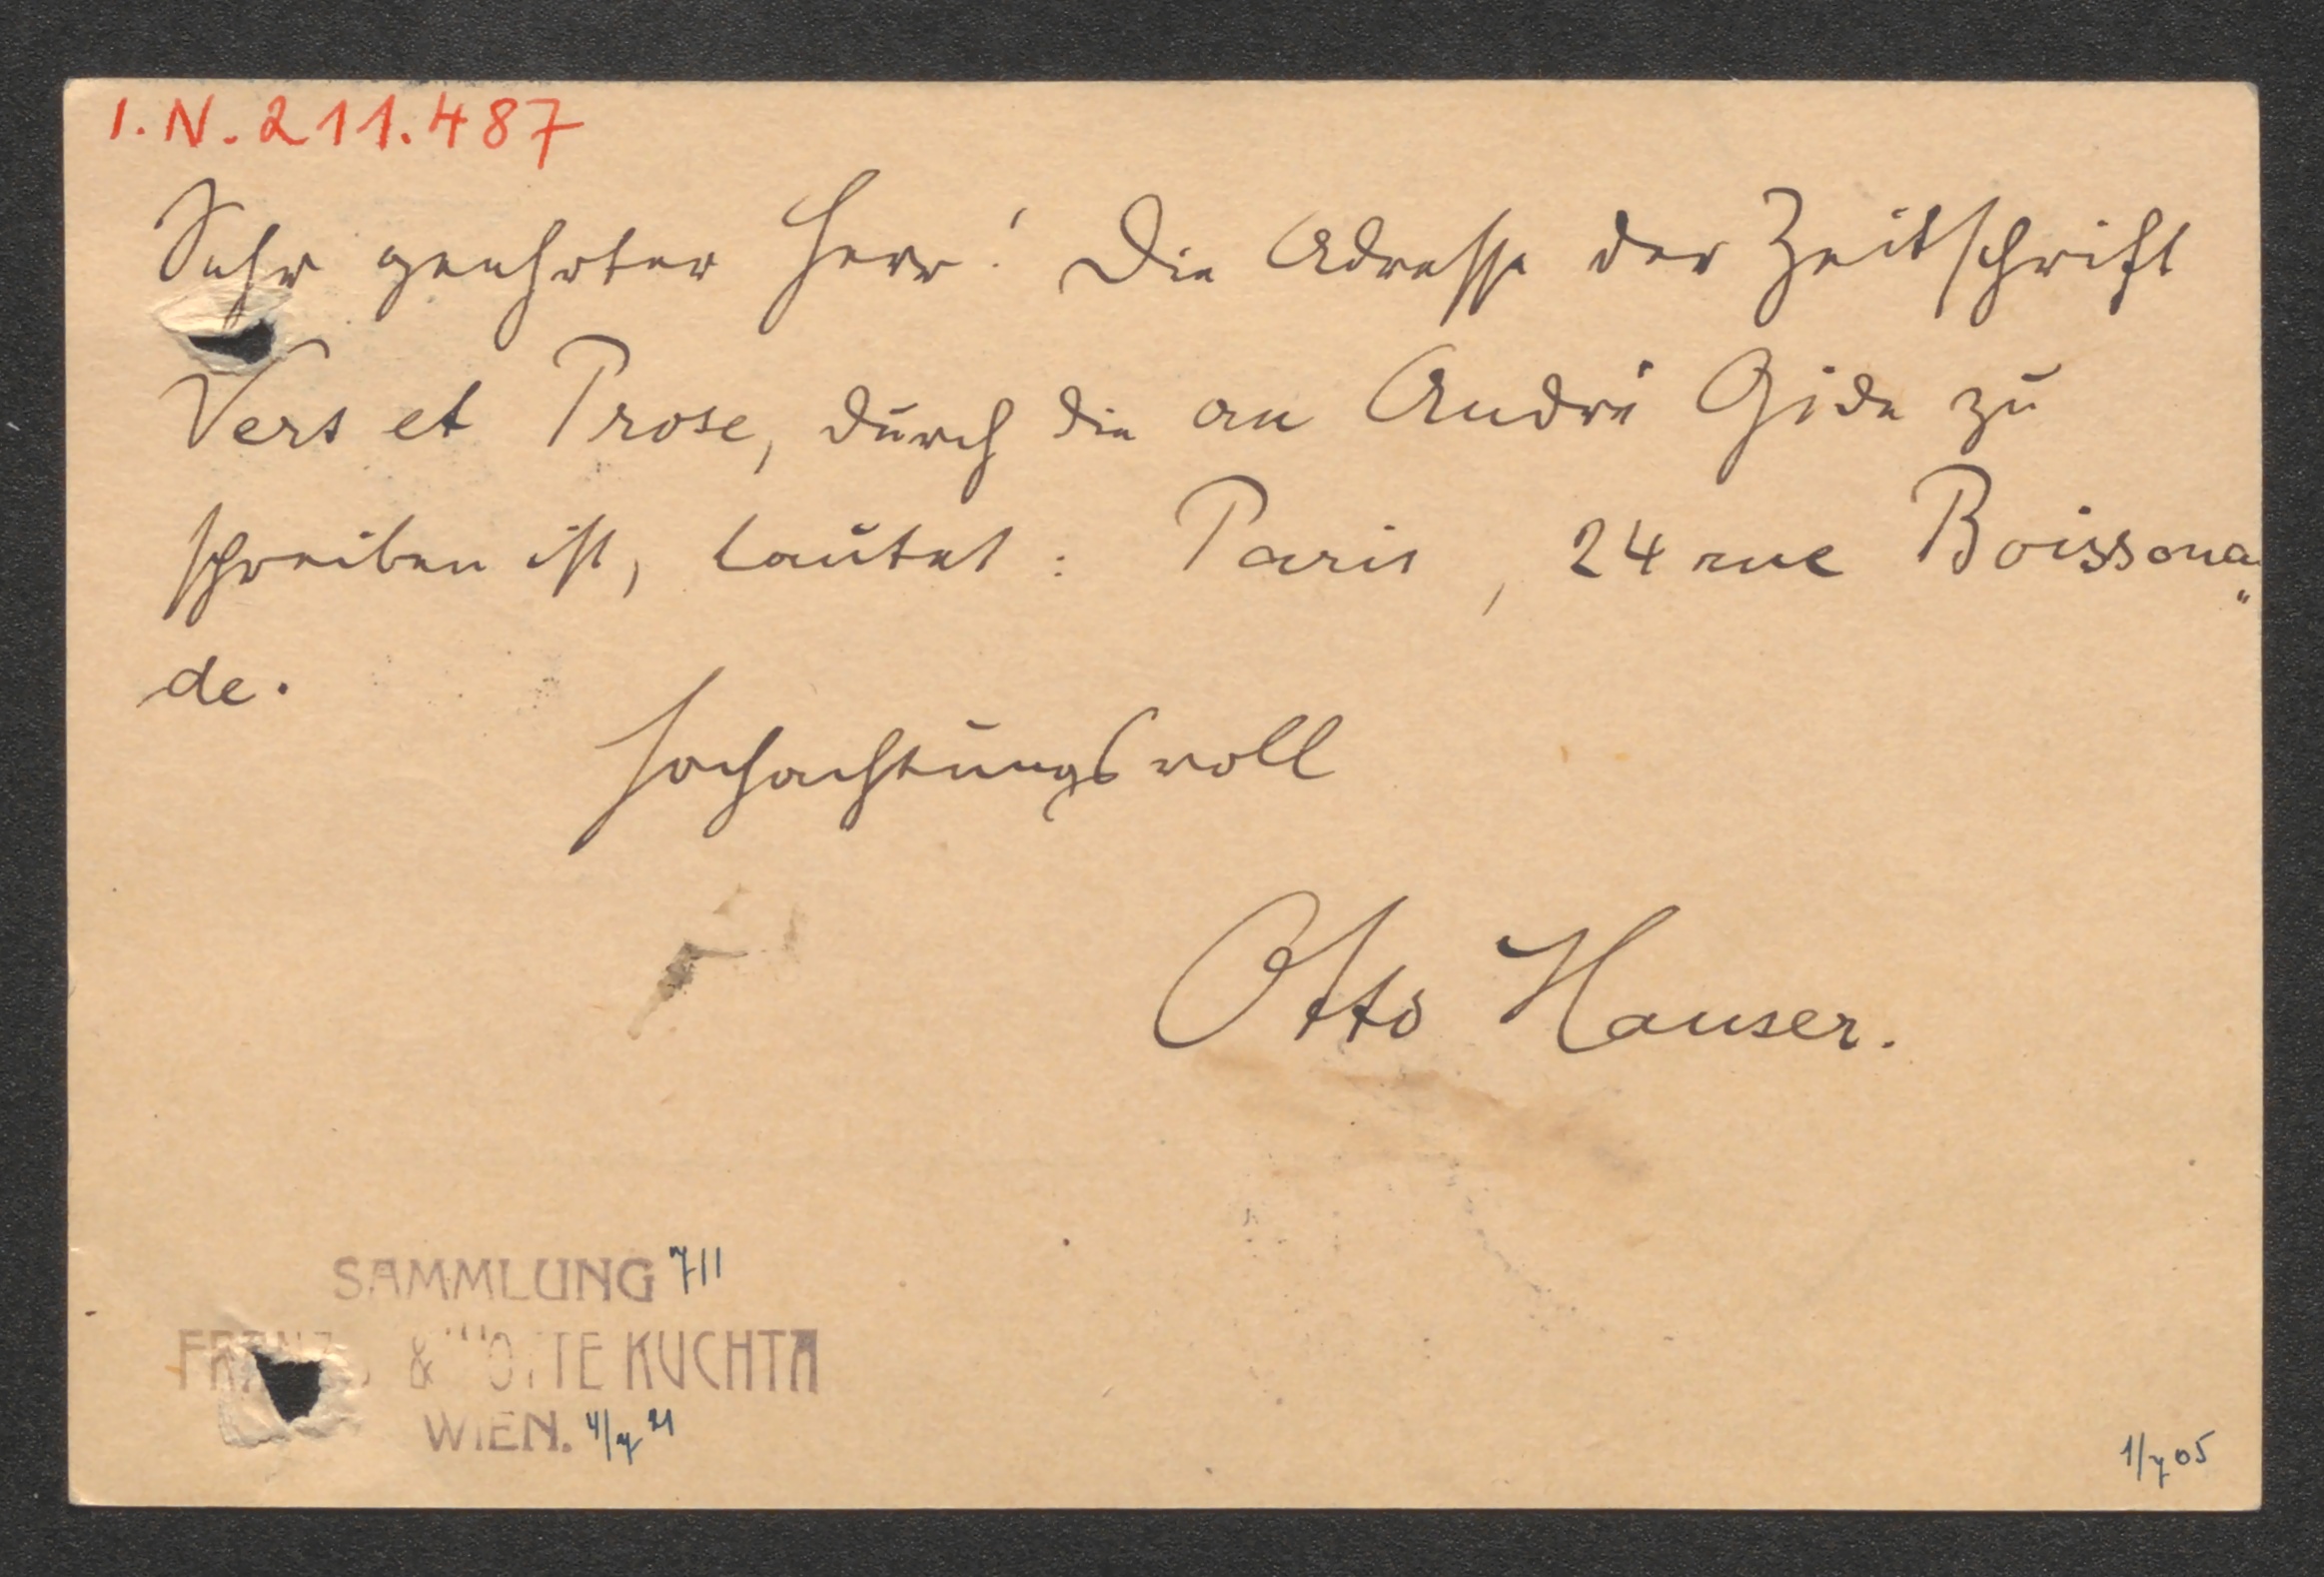 I.N. 211.487
Sehr geehrter Herr! Die Adresse der Zeitschrift
Vers et Prose, durch die an André Gide zu
schreiben ist, lautet: Paris, 24 rue Boissona„
de.
Hochachtungsvoll
Otto Hauser.
SAMMLUNG 711
& KUCHTA
WIEN. 4/7 21
1/7 05